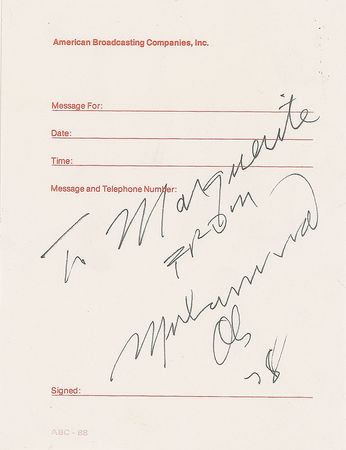 American Broadcasting Companies, Inc.
Message For:
Date:
Time:
Message and Telephone Number:
To Marguerite
FROM
Muhammad
Ali
78
Signed:
ABC - 88